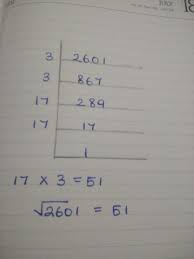 3 | 2601
3 | 867
17 | 289
17 | 17
1
17 x 3 = 51
√2601 = 51